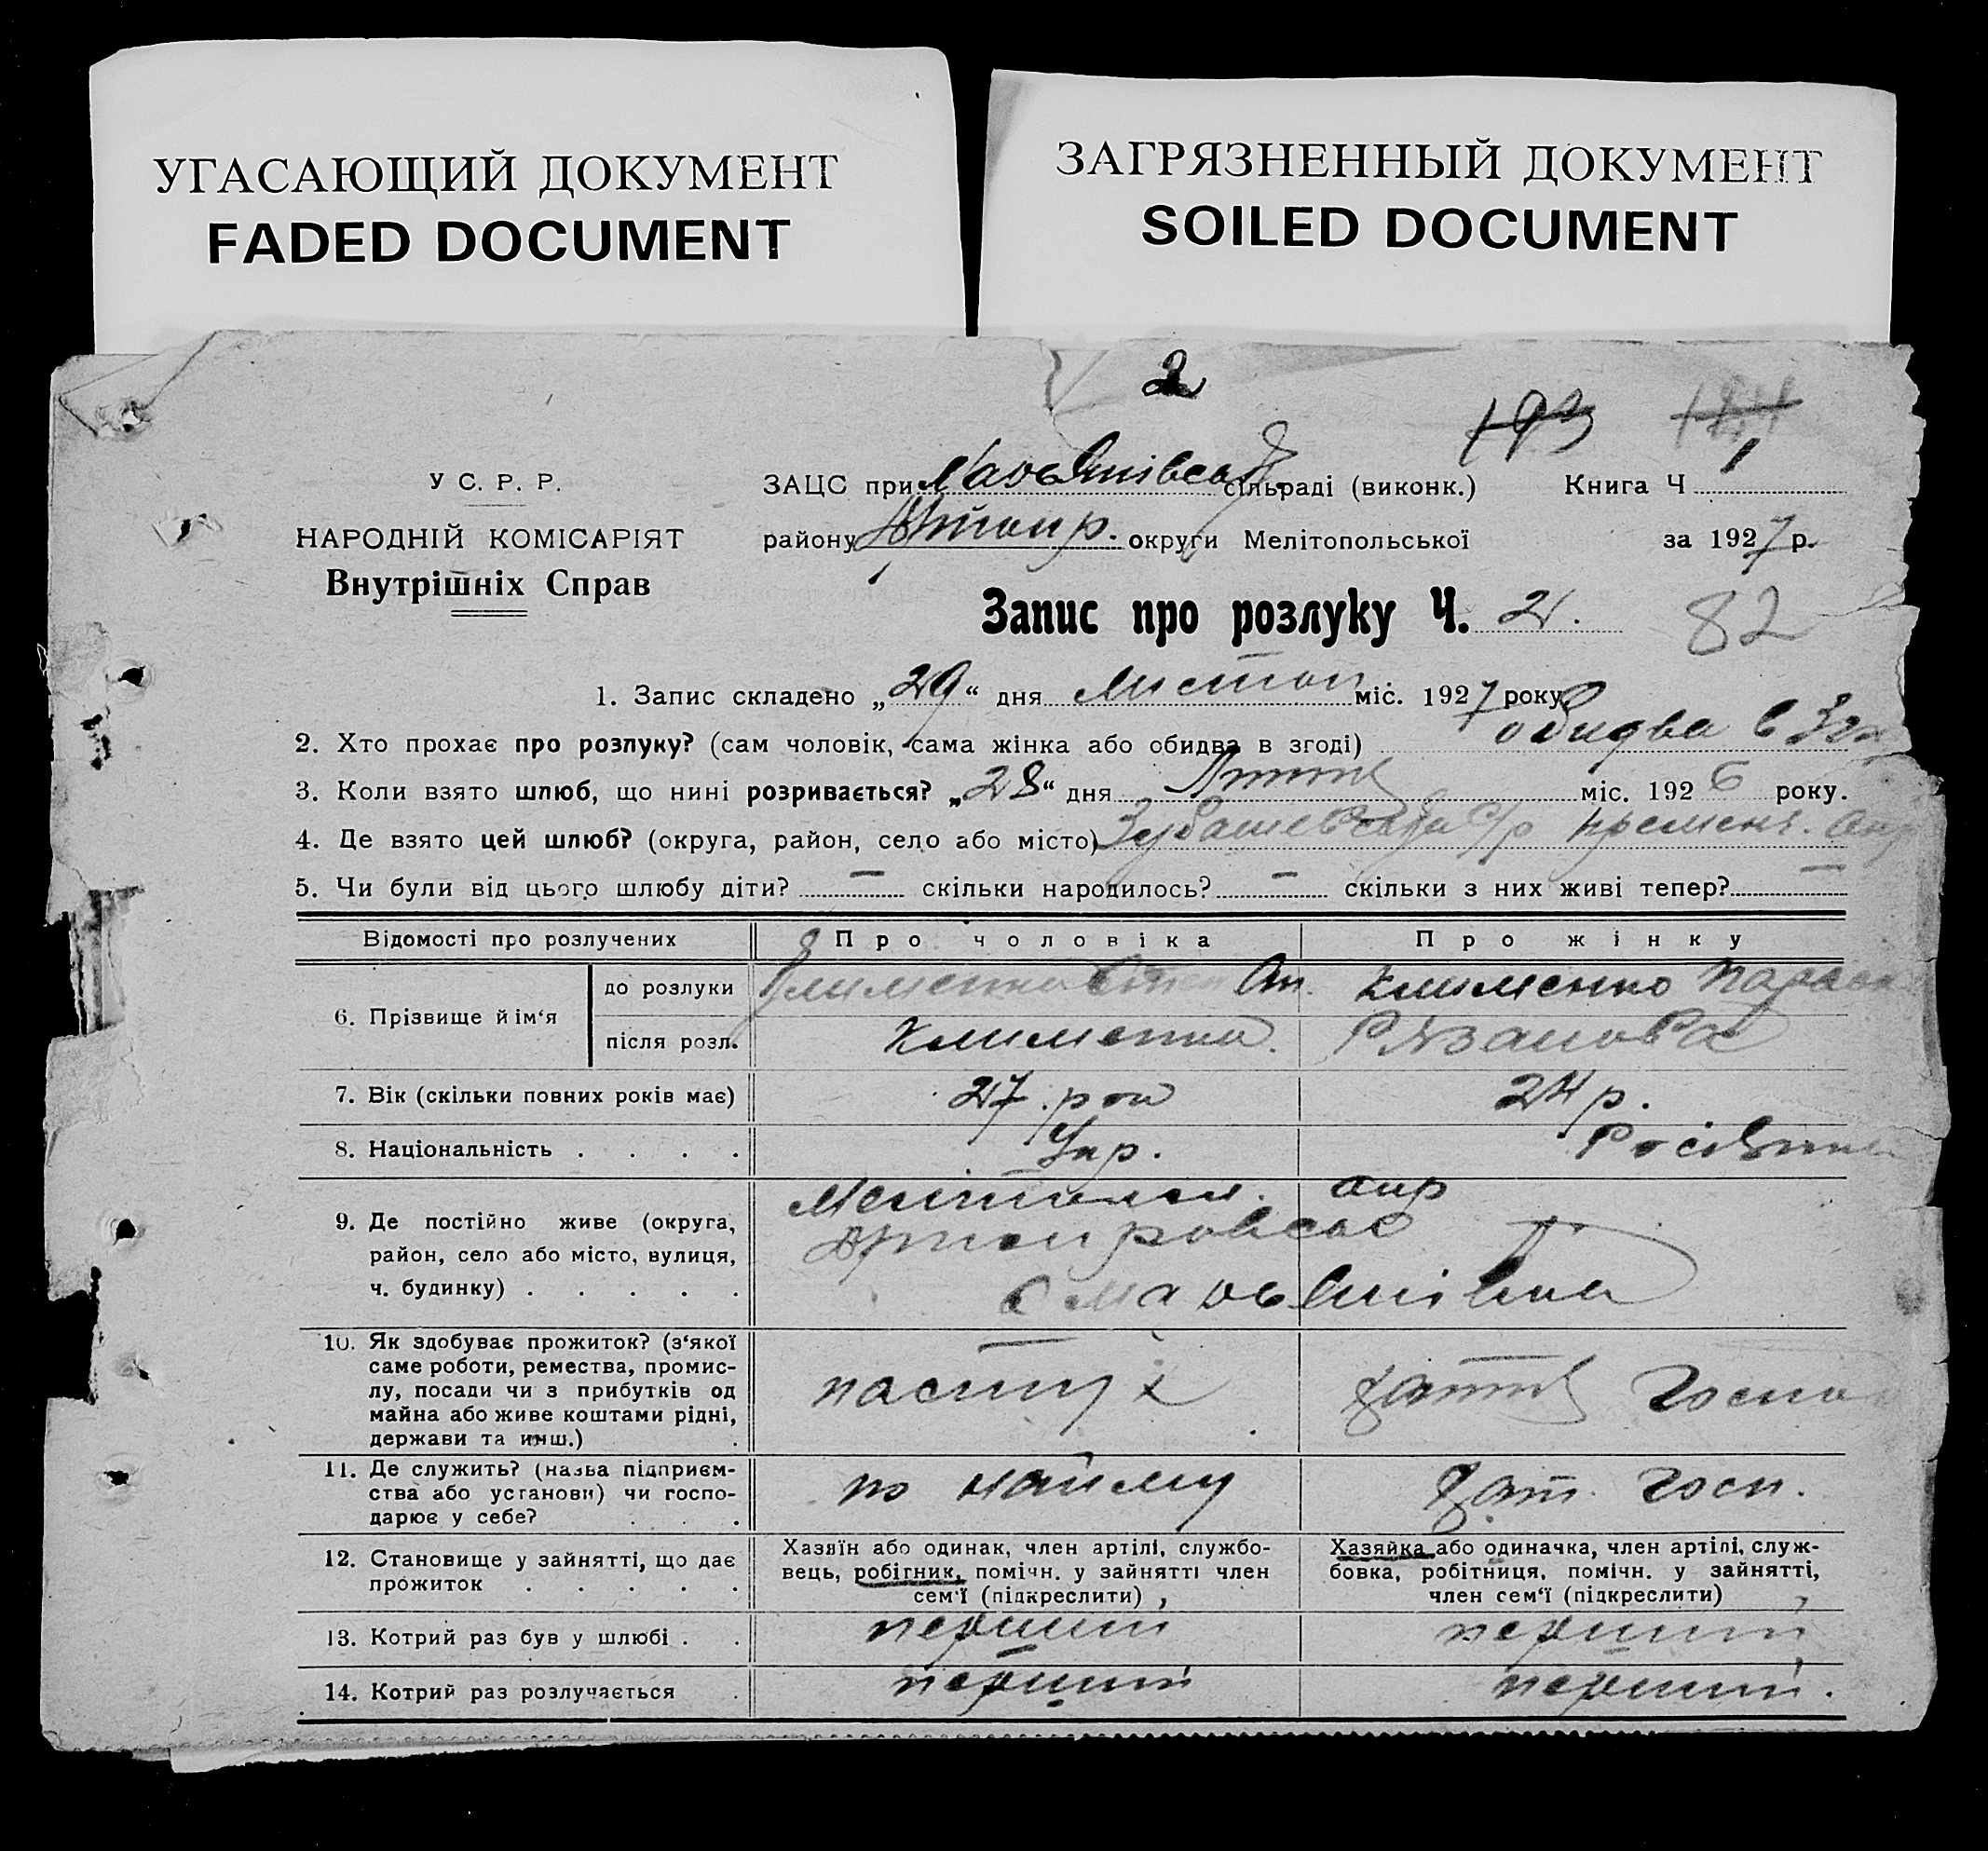 УГАСАЮЩИЙ ДОКУМЕНТ
FADED DOCUMENT
ЗАГРЯЗНЕННЫЙ ДОКУМЕНТ
SOILED DOCUMENT
2
193
У С. Р. Р.
НАРОДНІЙ КОМІСАРІЯТ
Внутрішніх Справ
ЗАЦС при сільраді (виконк.) Книга Ч 1
району округи Мелітопольської за 1927 р.
Запис про розлуку Ч. 2. 82
1. Запис складено „29“ дня Листоп міс. 1927 року
2. Хто прохає про розлуку? (сам чоловік, сама жінка або обидва в згоді) обидва в
3. Коли взято шлюб, що нині розривається? „28“ дня міс. 1926 року.
4. Де взято цей шлюб? (округа, район, село або місто)
5. Чи були від цього шлюбу діти? — скільки народилось? — скільки з них живі тепер? —
Відомості про розлучених Про чоловіка Про жінку
6. Прізвище й ім‘я до розлуки Клименко Клименко
після розл. Клименко. Рязанова
7. Вік (скільки повних років має) 27 рок 24 р.
8. Національність . . . . Укр.
9. Де постійно живе (округа, окр
район, село або місто, вулиця,
ч. будинку) . . . . .
10. Як здобуває прожиток? (з‘якої
саме роботи, ремества, промис-
лу, посади чи з прибутків од
майна або живе коштами рідні,
держави та инш.) .
пастух
11. Де служить? (назва підприєм-
ства або установи) чи госпо-
дарює у себе? . . .
по найму госп.
12. Становище у зайнятті, що дає
прожиток . . . . .
Хазяїн або одинак, член артілі, службо-
вець, робітник, помічн. у зайнятті член
сем‘ї (підкреслити)
Хазяйка або одиначка, член артілі, служ-
бовка, робітниця, помічн. у зайнятті,
член сем‘ї (підкреслити)
13. Котрий раз був у шлюбі . . перший перший
14. Котрий раз розлучається . перший перший.